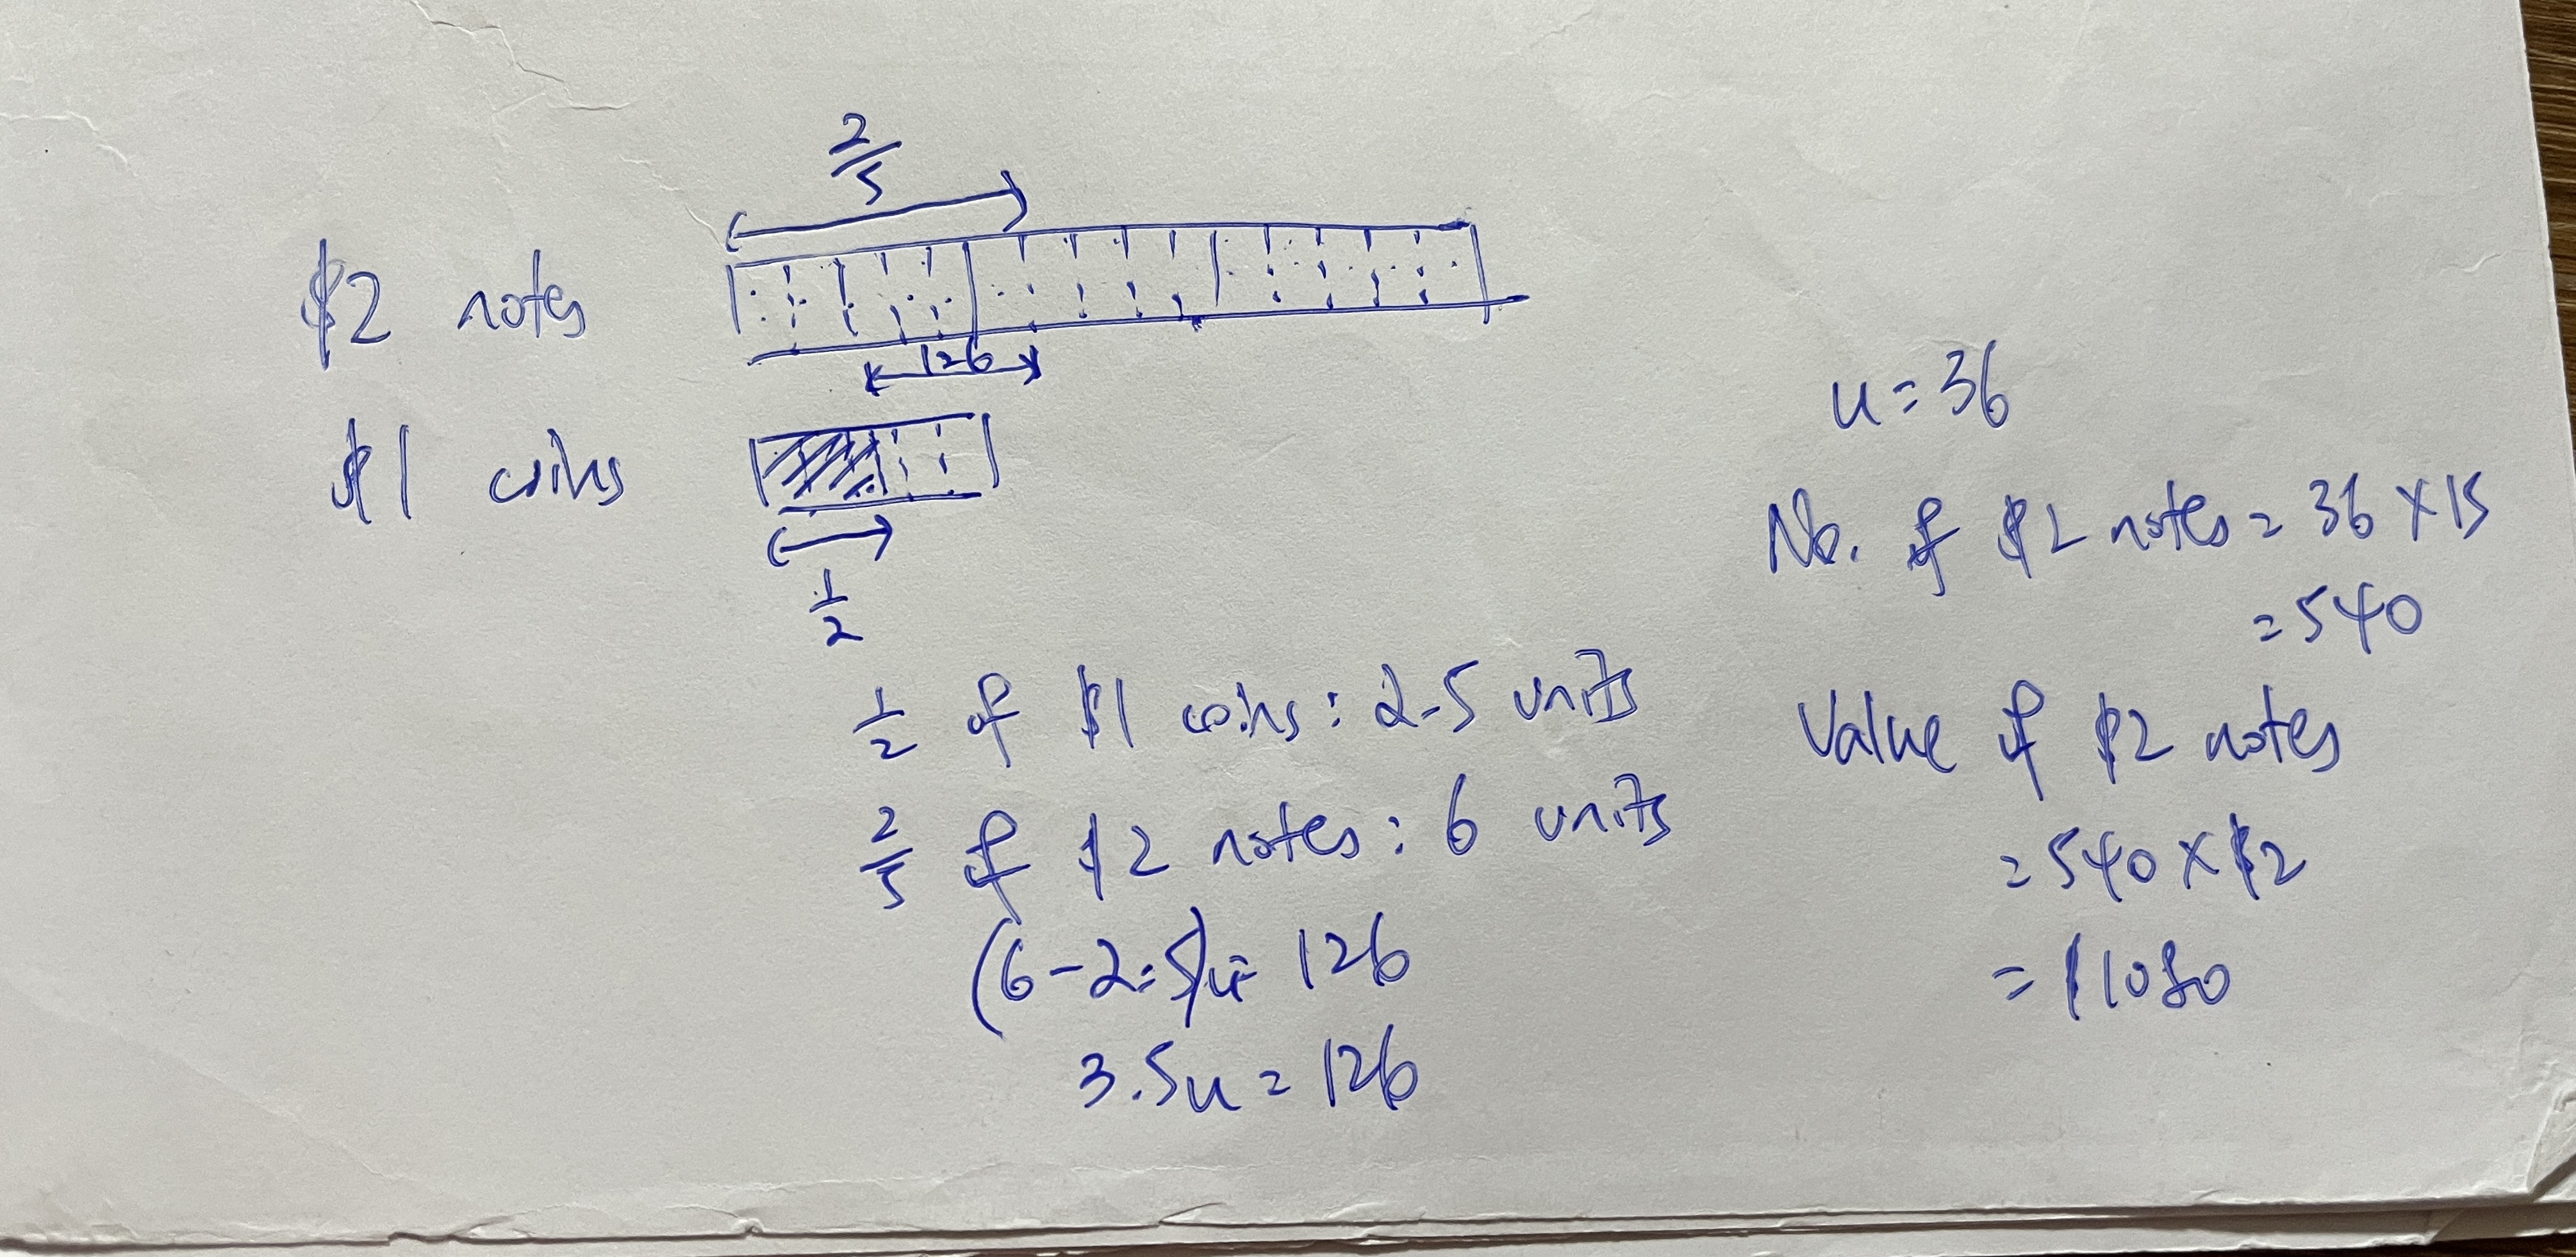 2/5
$2 notes
126
$1 coins
1/2
1/2 of $1 coins: 2.5 units
2/5 of $2 notes: 6 units
(6-2.5)u= 126
3.5u = 126
u=36
No. of $2 notes = 36 × 15
= 540
Value of $2 notes
= 540 × $2
= $1080